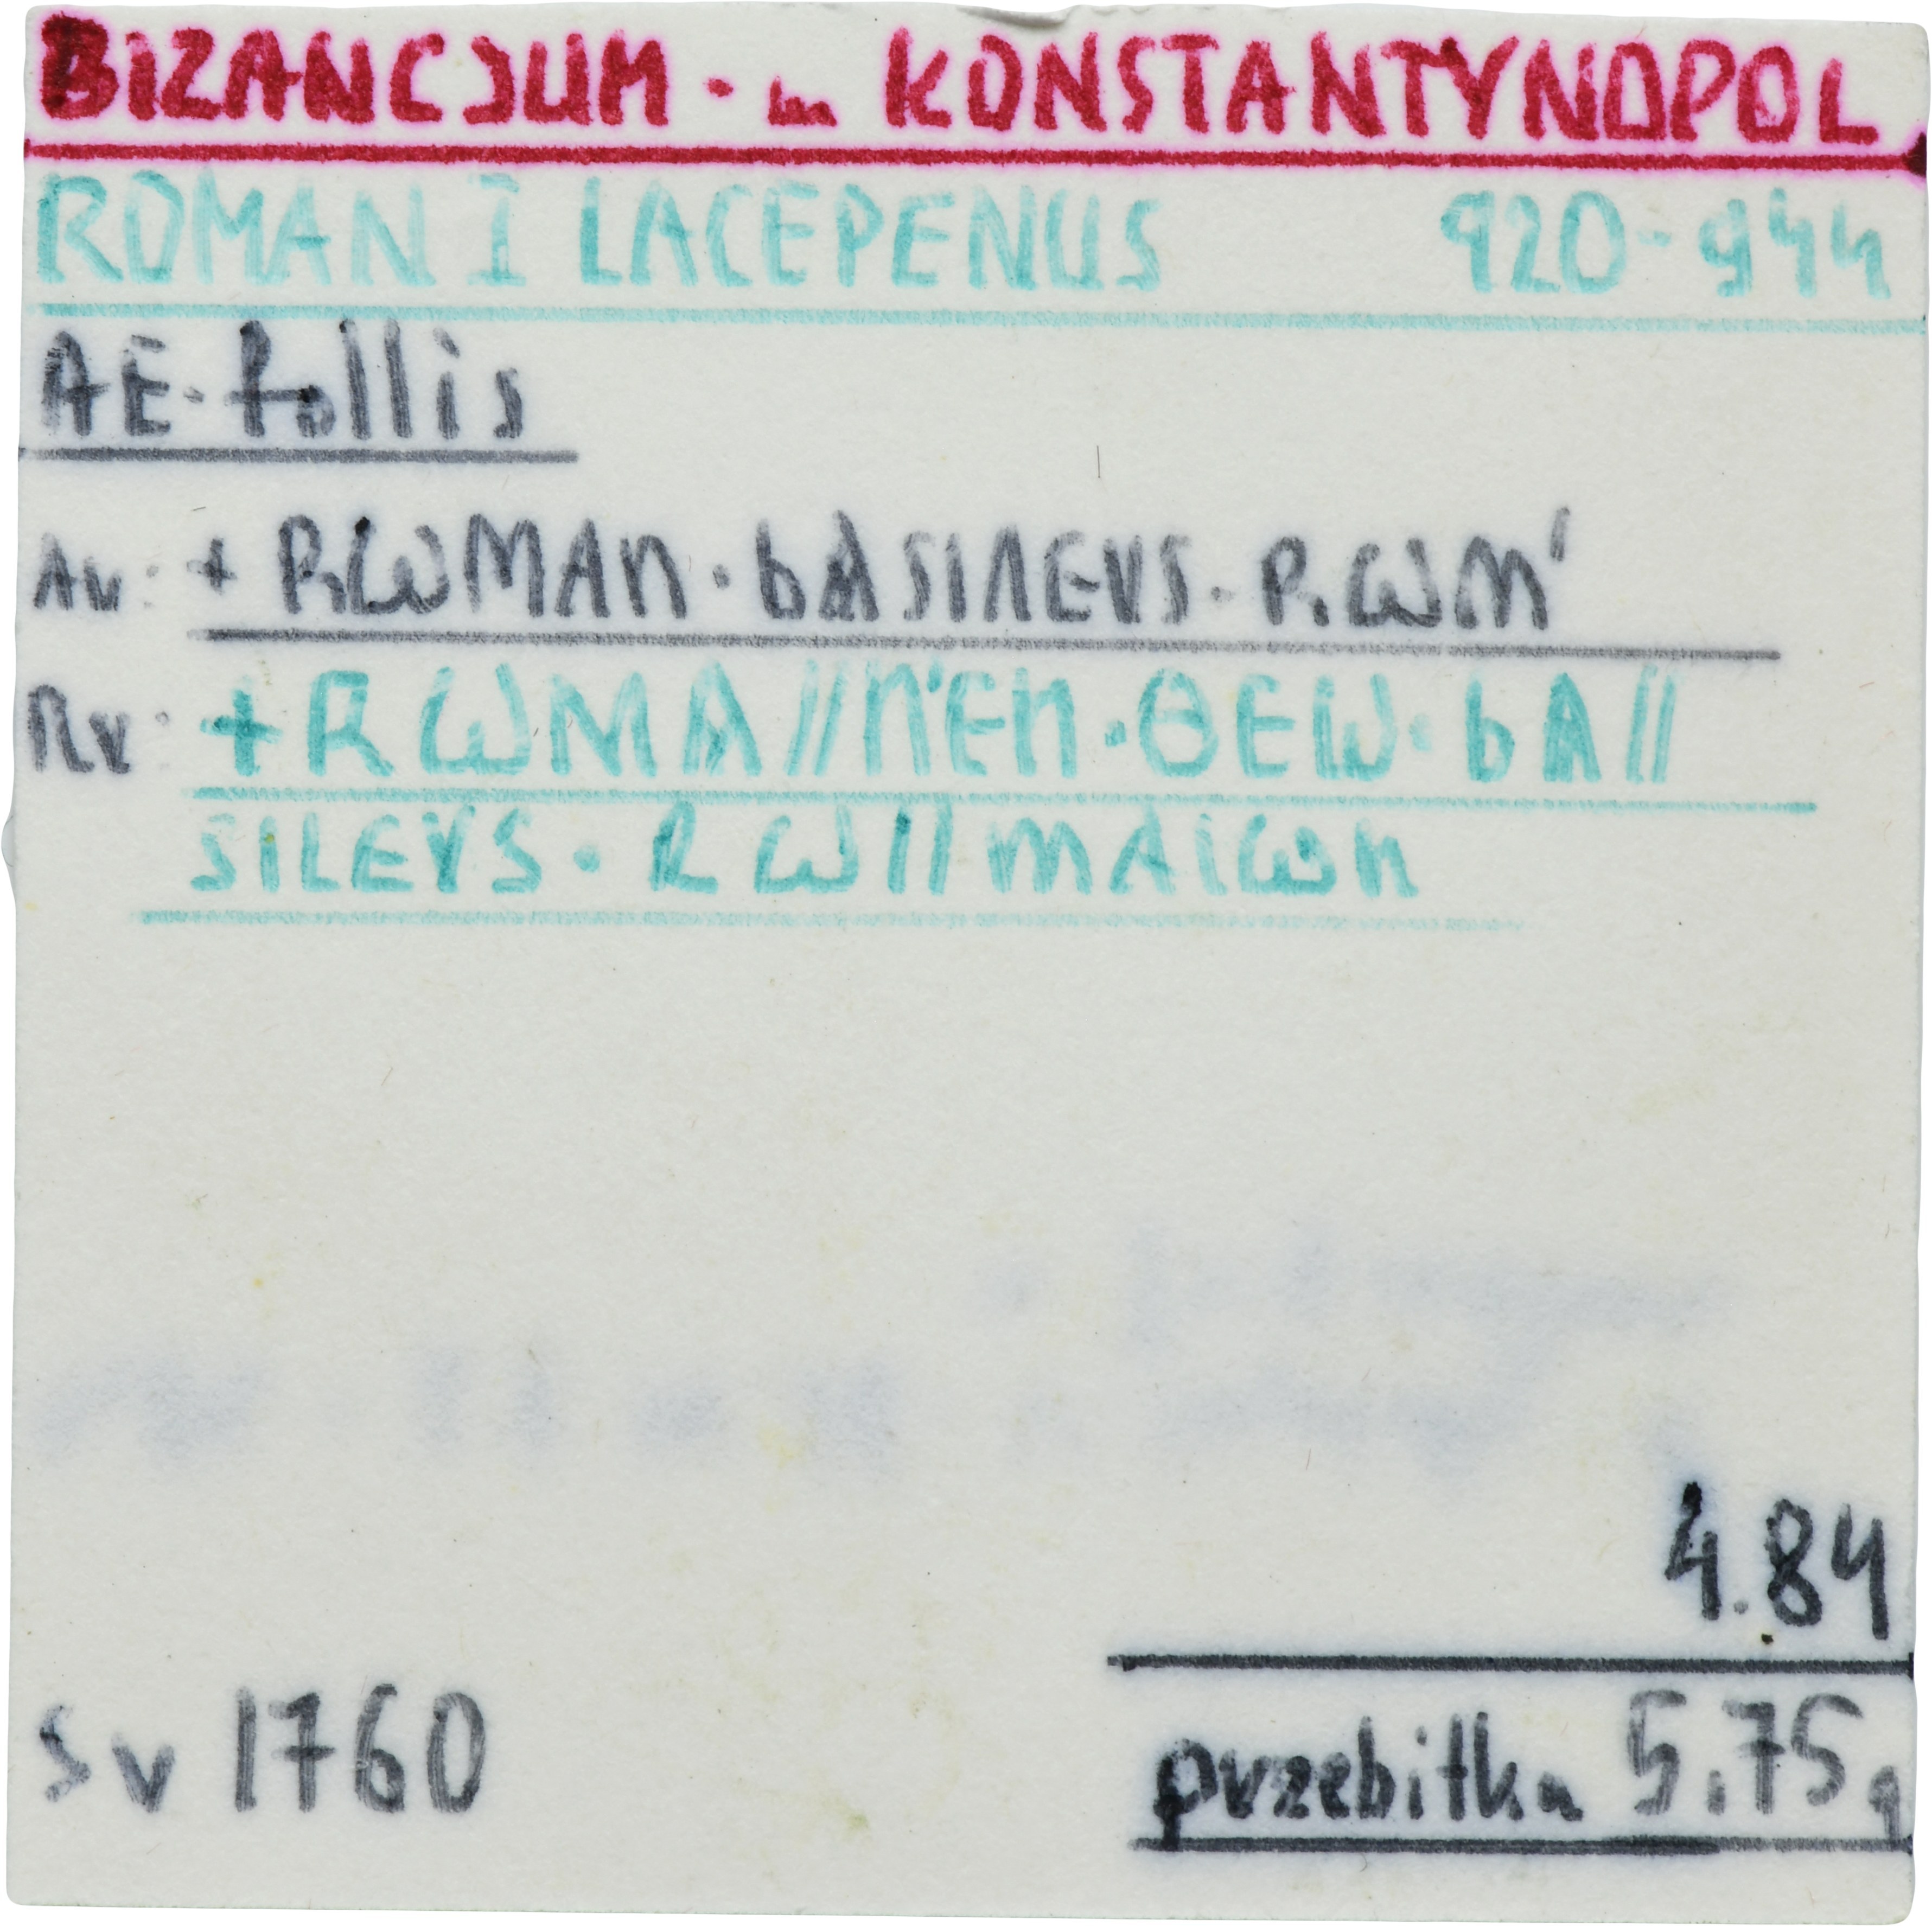 BIZANCJUM · m KONSTANTYNOPOL
ROMAN I LACEPENUS 920-944
AE · follis
Av: + RωMAn · bASIΛEVS · RωM'
Rv: +RωMA//n'En · ΘEω · bA//
SILEVS · Rω//mAIωn
4.84
Sv 1760 przebitka 5,75g